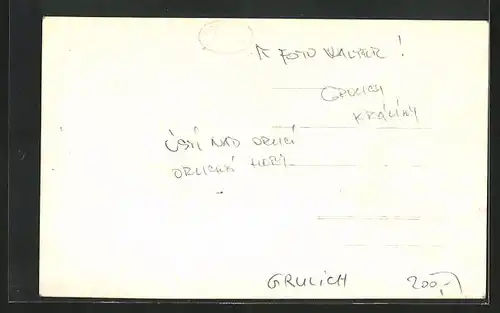 FOTO WALTER !
GRULICH
KRÁLÍKY
ÚSTÍ NAD ORLICÍ
ORLICKÉ HORY
GRULICH 200,-